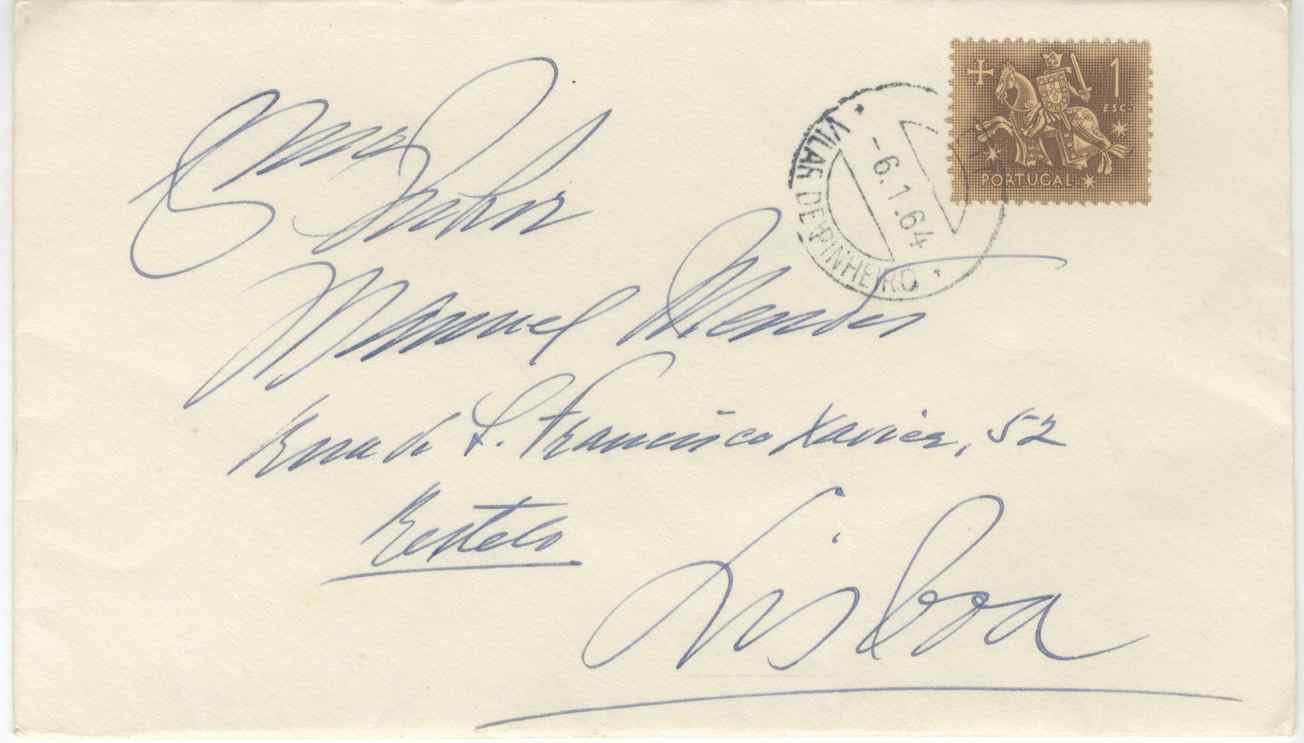 1
ESC.
PORTUGAL
VILAR DE PINHEIRO
-6.1.64
Exmo
Senhor
Manuel Mendes
Rua de S. Francisco Xavier, 52
Restelo
Lisboa